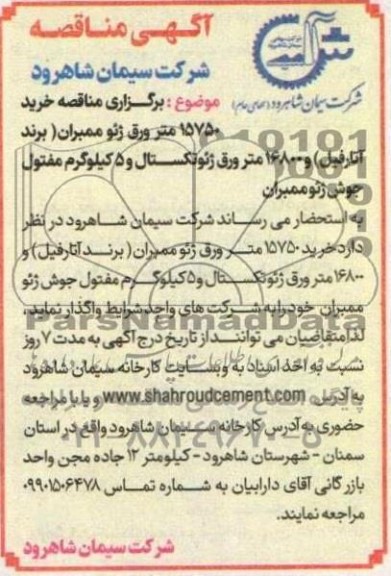 آگهـی مناقصـه
شرکت سیمان شاهرود
شرکت سیمان شاهرود (سهامی عام)
موضوع : برگزاری مناقصه خرید
۱۵۷۵۰ متر ورق ژئو ممبران( برند
آتارفیل) و ۱۶۸۰۰ متر ورق ژئوتکستال و ۵ کیلوگرم مفتول
جوش ژئو ممبران
به استحضار می رساند شرکت سیمان شاهرود در نظر
دارد خرید ۱۵۷۵۰ متر ورق ژئو ممبران ( برند آتارفیل) و
۱۶۸۰۰ متر ورق ژئوتکستال و ۵ کیلوگرم مفتول جوش ژئو
ممبران خود را به شرکت های واجد شرایط واگذار نماید،
لذا متقاضیان می توانند از تاریخ درج آگهی به مدت ۷ روز
نسبت به اخذ اسناد به وبسایت کارخانه سیمان شاهرود
به آدرس www.shahroudcement.com و یا با مراجعه
حضوری به آدرس کارخانه سیمان شاهرود واقع در استان
سمنان - شهرستان شاهرود - کیلومتر ۱۲ جاده مجن واحد
بازرگانی آقای دارابیان به شماره تماس ۰۹۹۰۱۵۰۶۴۷۸
مراجعه نمایند.
شرکت سیمان شاهرود
ParsNamadData
۰۲۱-۸۸۳۴۹۶۷۰-۵